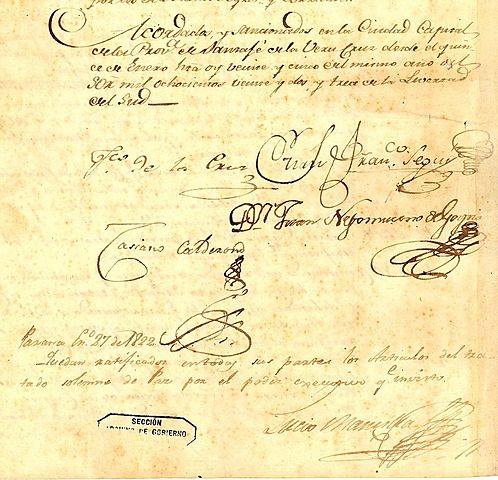 Acordados, y sancionados en la Ciudad Capital
de la Prov.ª de Santafé de la Vera Cruz desde el quin
ce de Enero hta oy veinte y cinco del mismo año del
mil ochocientos veinte y dos y trece de la Livertad
del Sud
Fco. de la Cruz
Fran.co Seguí
Juan Nepomuceno de Goytia
Casiano Calderon
Parana En.o 27 de 1822
Quedan ratificados en todas sus partes los Articulos del tra
tado solemne de Paz por el poder executivo
Lucio Mansilla
SECCIÓN
DE GOBIERNO